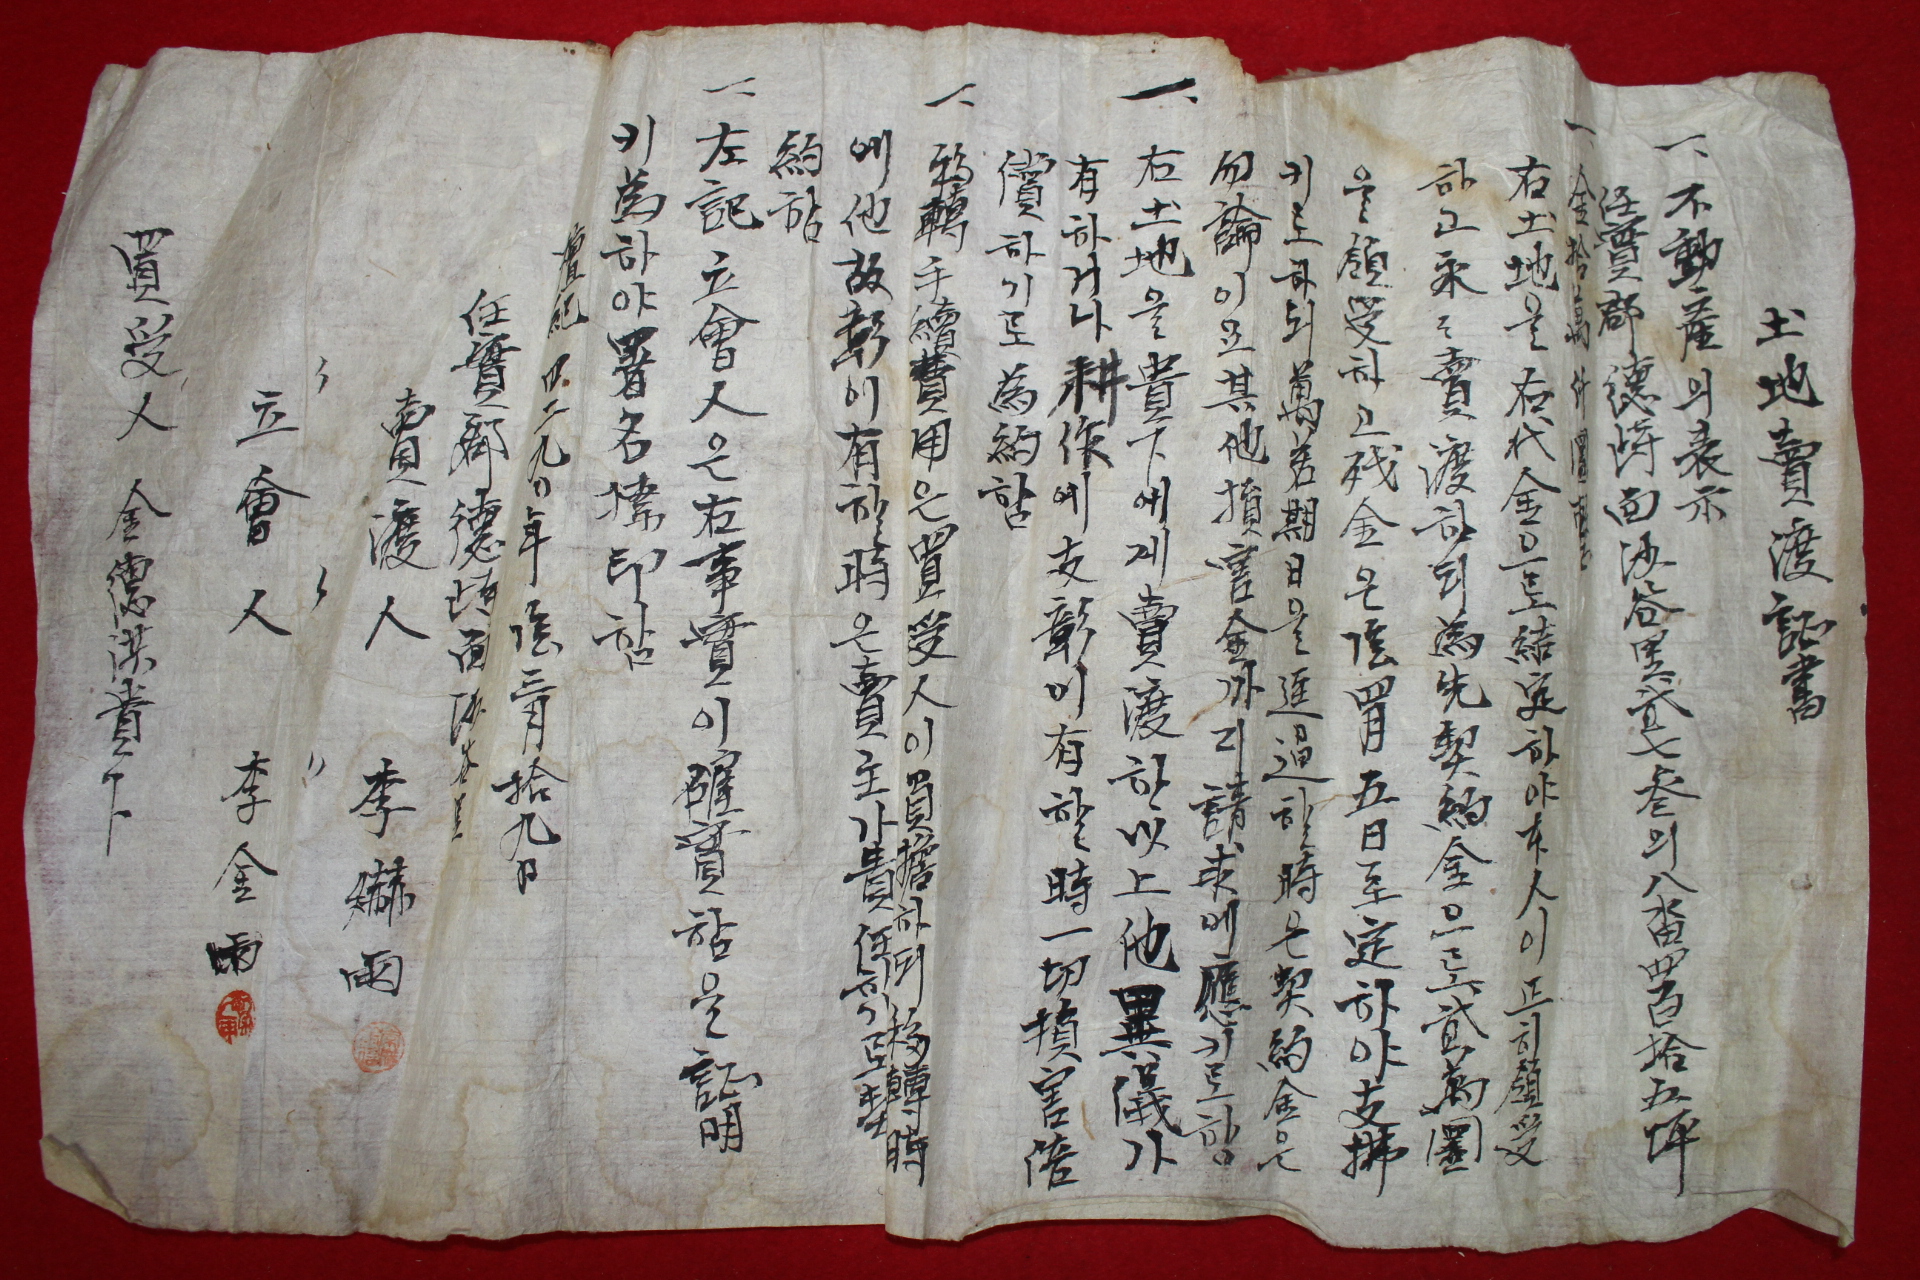 土地賣渡証書
一、不動産의表示
任實郡德峙面沙谷里貳七叁의八畓四百拾五坪
一、金拾萬
右土地을右代金으로結定하야本人이正히領受
하고永々賣渡하되為先契約金으로貳萬圜
을領受하고殘金은陰四月五日至定하야支拂
키로하되萬若期日을進過할時은契約金은
勿論이요其他損害金까지請求에應키로함
一、右土地을貴下에게賣渡한以上他異議가
有하거나耕作에支彰이有할時一切損害陪
償하기로為約함
一、移轉手續費用은買受人이負擔하되移轉時
에他故彰이有할時은賣主가責任하기로契
約함
一、左記立會人은右事實이確實함을証明
키為하야署名捺印함
檀紀四二九〇年陰三月拾九日
任實郡德峙面沙谷里
賣渡人 李 雨
〃 〃 〃
立會人 李金雨
買受人 金德洪貴下